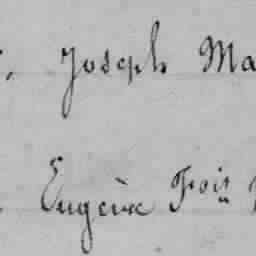 Joseph Ma
Eugène Fçois